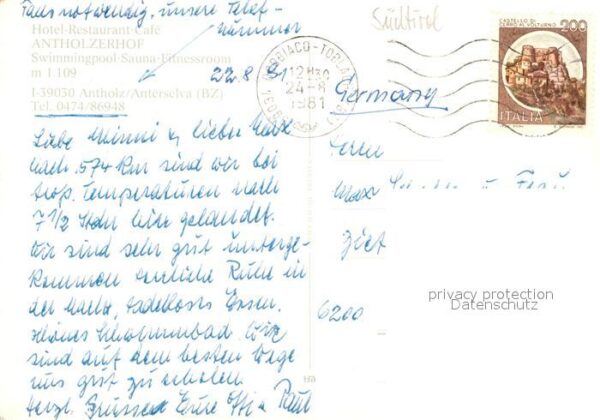 Falls notwendig, unsere Telef-
nummer
Südtirol
Hotel-Restaurant-Café
ANTHOLZERHOF
Swimmingpool-Sauna-Fitnessroom
m 1.109
I-39030 Antholz/Anterselva (BZ)
Tel. 0474/86948
22.8.81
DOBBIACO-TOBLACH
12
24-8
1981
CASTELLO DI
CERRO AL VOLTURNO
200
ITALIA
Germany
Liebe Minni & lieber Max
Nach 574 km sind wir bei
trop. Temperaturen nach
7 1/2 Stdn hier gelandet.
Wir sind sehr gut unterge-
kommen herrliche Ruhe in
der Nacht, tadelloses Essen,
schönes Schwimmbad. Wir
sind auf dem besten Wege
uns gut zu erholen
Herzl. Grüsse Eure & Paul
Herrn
Max u Frau
6200
privacy protection
Datenschutz